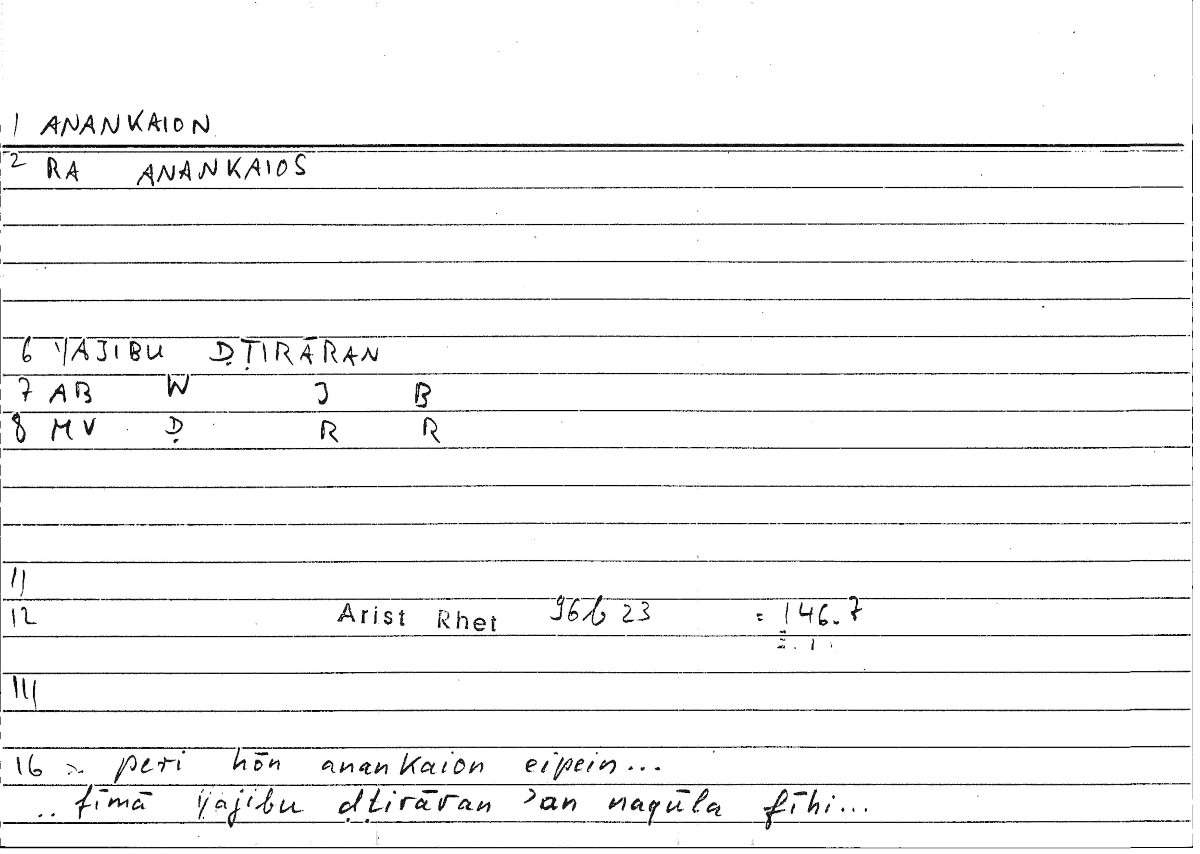 1 ANANKAION
2 RA ANANKAIOS
6 YAJIBU ḌṬIRĀRAN
7 AB W J B
8 MV Ḍ R R
11
12 Arist Rhet 96b 23 = 146.7
16 peri hōn anankaion eipein...
.. fīmā yajibu ḍṭirāran ʾan naqūla fīhi...